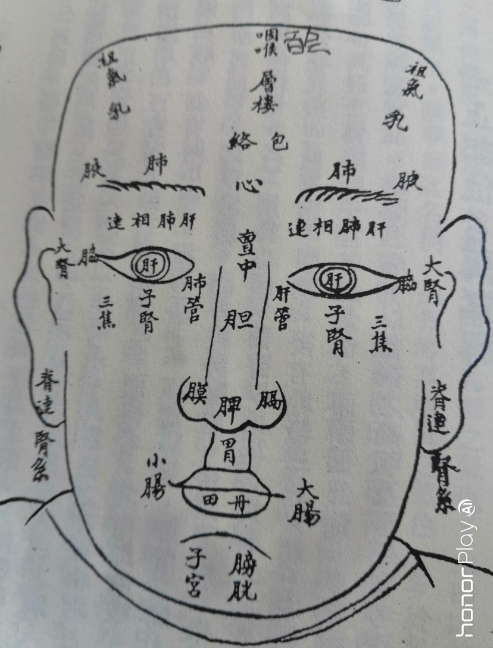 咽喉
祖氣
乳
祖氣
乳
層楼
絡包
肺
腋
肺
腋
心
連相肺肝
連相肺肝
亶中
大腎
脇
肝
肺管
肝管
肝
脇
大腎
三焦
子腎
胆
子腎
三焦
脊連腎系
膜
脾
膈
脊連腎系
胃
小腸
田丹
大腸
子宮
膀胱
honorPlay